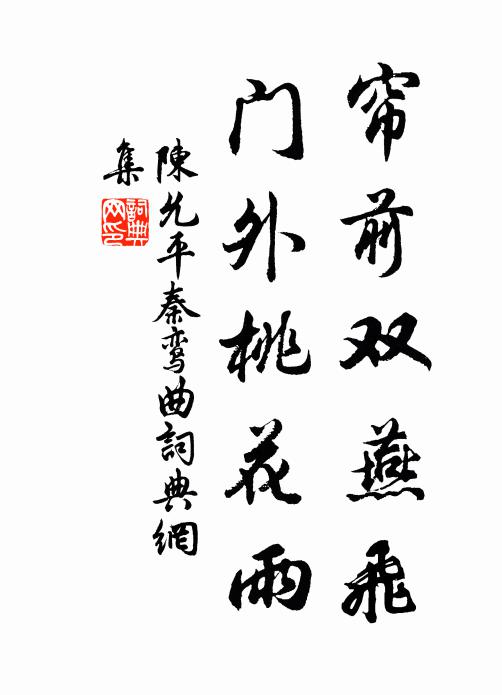 帘前双燕飞
门外桃花雨
陳允平秦鸾曲詞典網
集
詞典网印